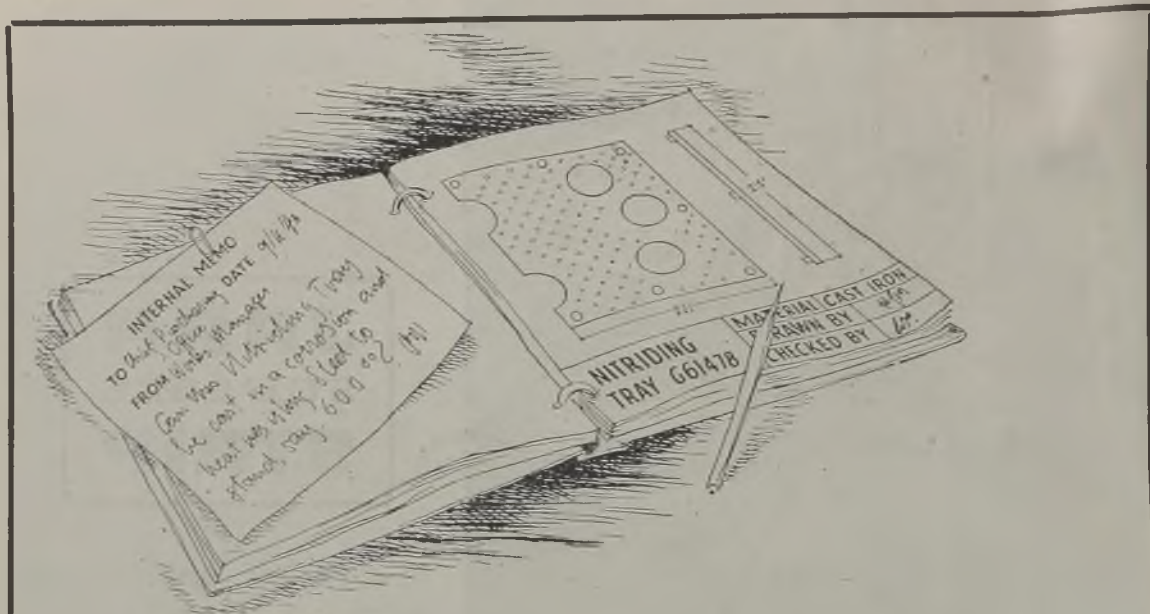 INTERNAL MEMO
TO Chief Purchasing DATE
Office
FROM Works Manager
Can this Nitriding Tray
be cast in a corrosion and
heat resisting steel to
stand, say 600°C?
NITRIDING
TRAY G61478
MATERIAL CAST IRON
DRAWN BY
CHECKED BY